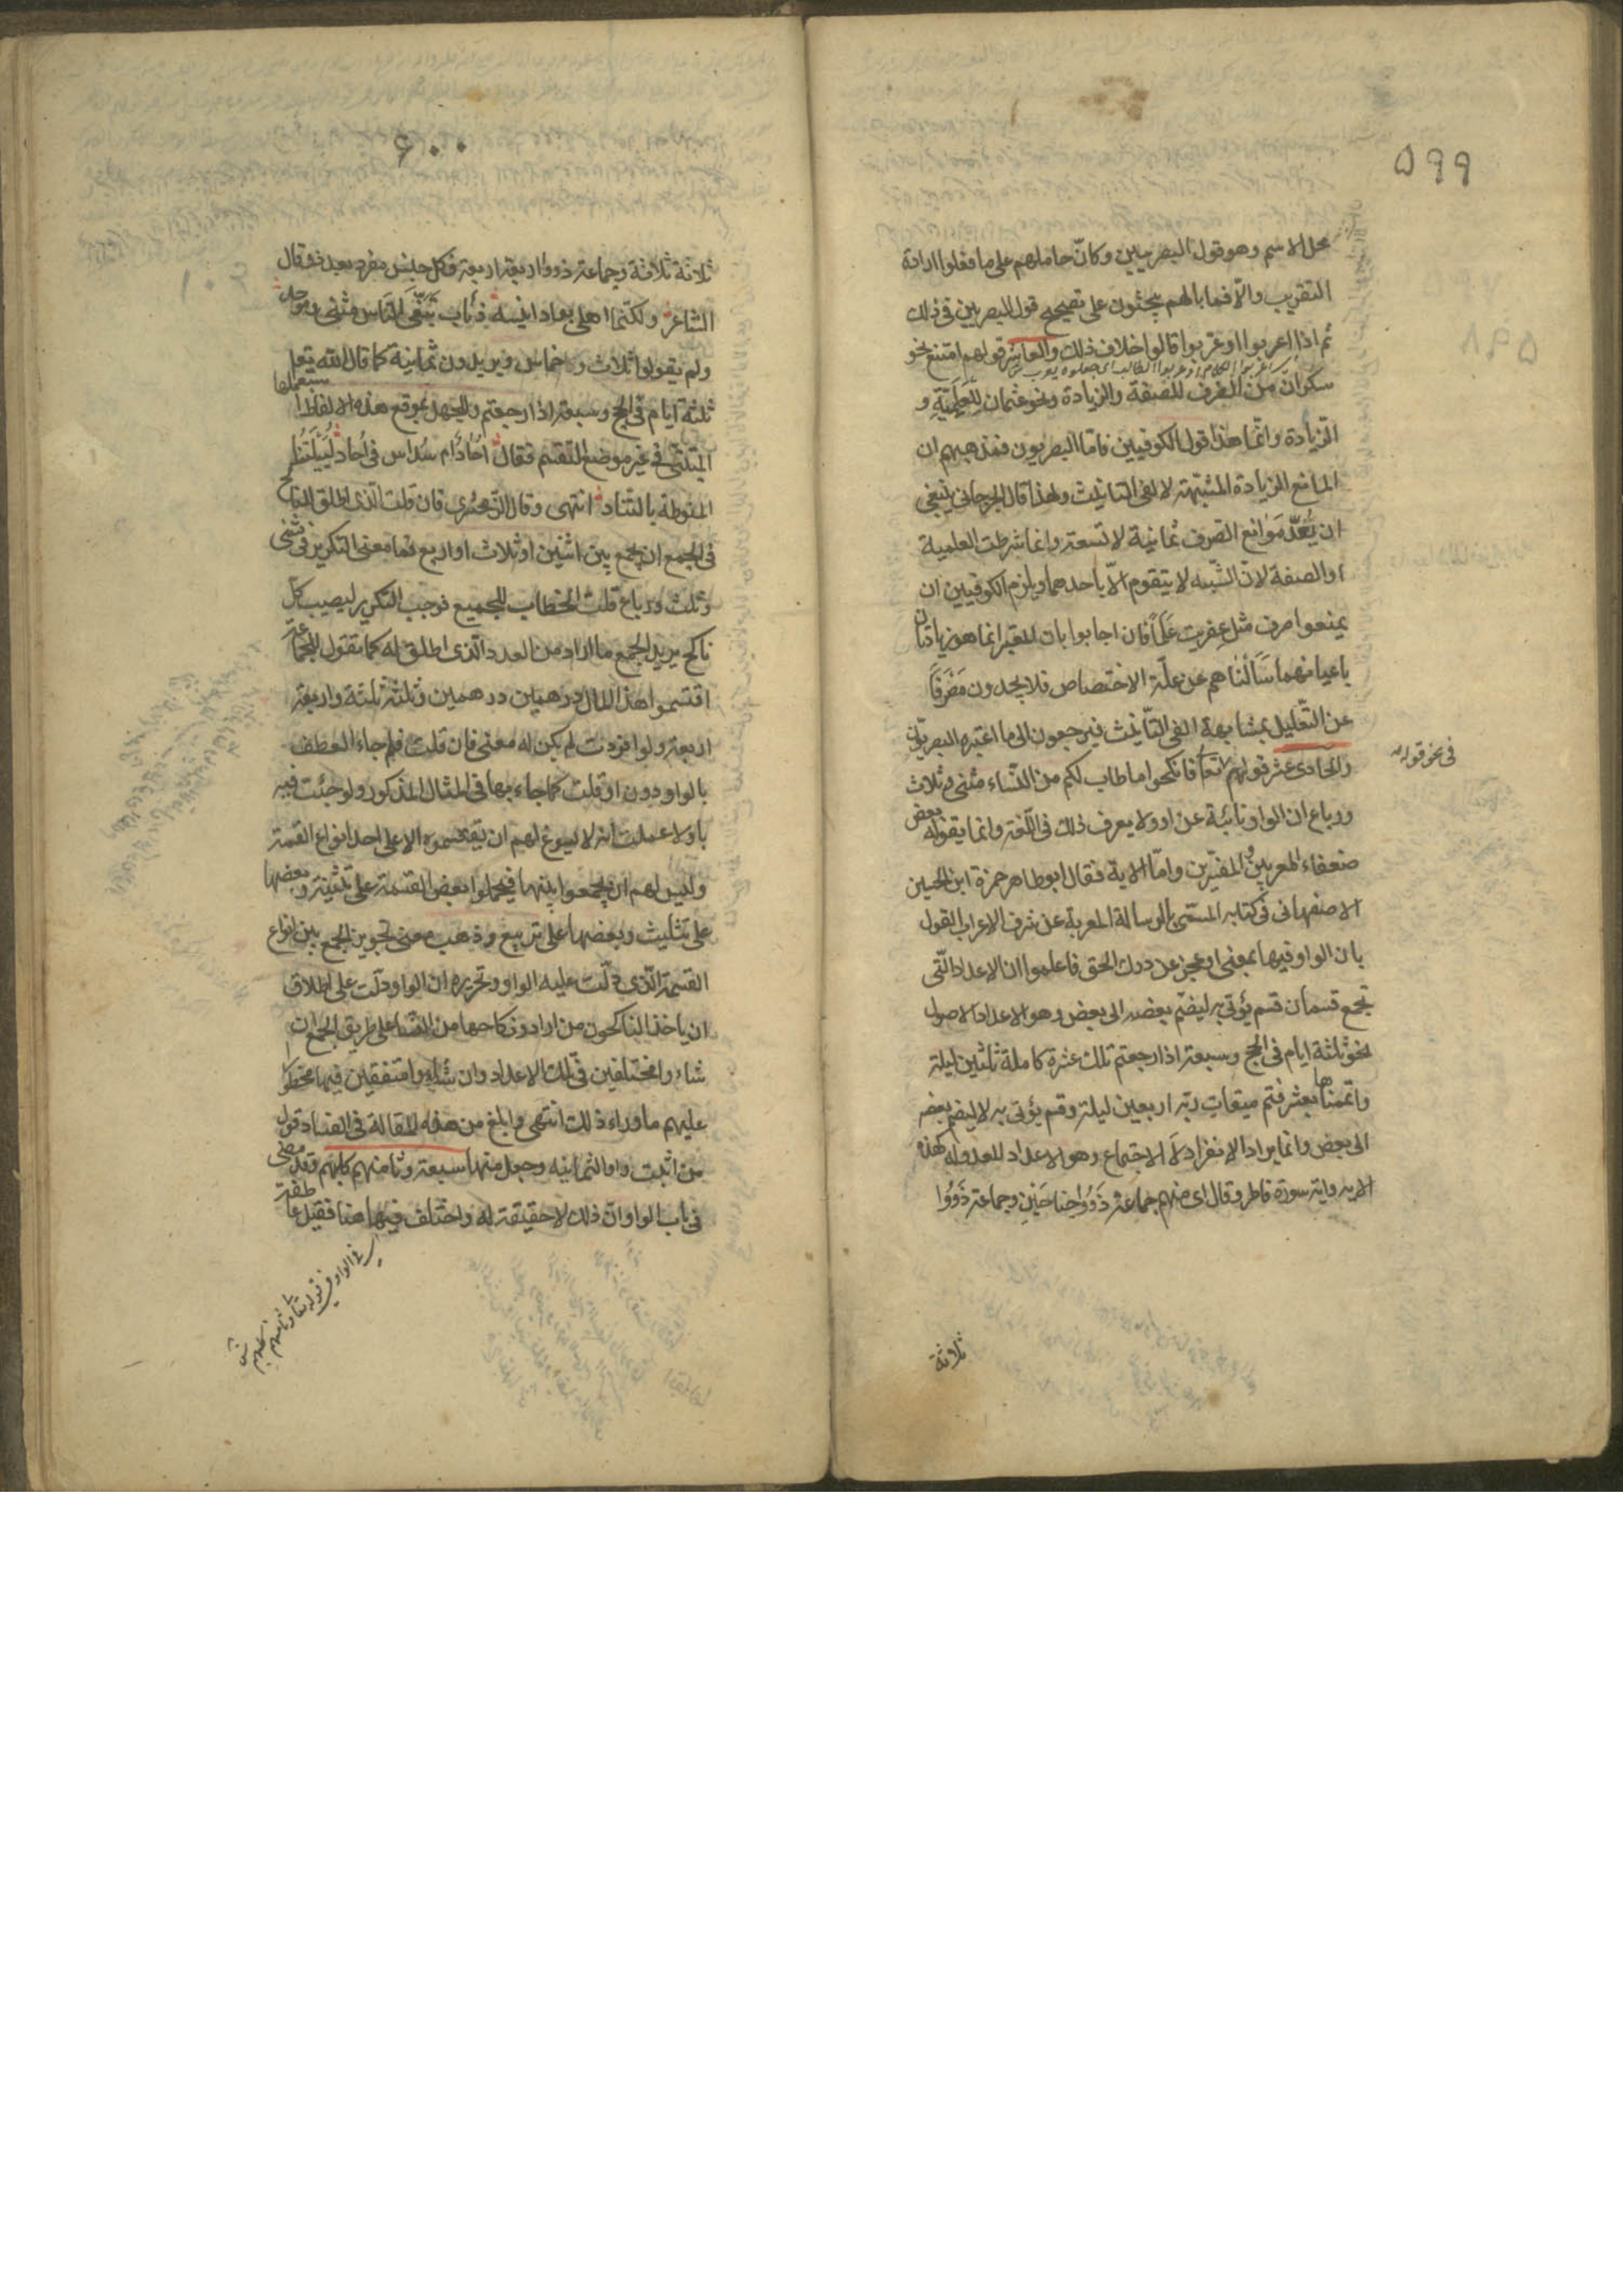 ۵۹۹
محل الاسم وهو قول البصريين وكانّ حاملهم على ما فعلوا ارادة
التقريب والّا فما بالهم يبحثون على تصحيح قول البصريين فى ذلك
ثم اذا اعربوا اوعربوا قالوا خلاف ذلك والعاشر قولهم امتنع نحو
سكران من الصرف للصفة والزيادة ونحو عثمان للعَلَمِيّةِ و
الزيادة وانما هذا قول الكوفيين فامّا البصريون فمذهبهم ان
المانع الزيادة المشبّهة لالفى التانيث ولهذا قال الجرجانى ينبغى
ان يُعَدَّ مَوانع الصّرف ثمانية لا تسعة وانما شرطت العلمية
اوالصفة لانّ الشّبه لا يتقوم الّا باحدهما ويلزم الكوفيين ان
يمنعوا صرف مثل عِفريت عَلَماً فان اجابوا بان المعتبر انما هو زيادتان
باعيانهما سَاَلْناهم عن علّة الاختصاص فلا يجدون مَصْرَفاً
عن التّعليل بمشابهة الفى التّأنيث فيرجعون الى ما اعتبره البصريّون
والحادى عشر قولهم فى نحو قوله تعالى فانكحوا ما طاب لكم من النّساء مثنى وثلاث
ورباع ان الواو نائبة عن او ولا يعرف ذلك فى اللّغة وانما يقوله بعض
ضعفاء المعربين والمفسّرين وامّا الاية فقال ابوطاهر حمزة ابن الحسين
الاصفهانى فى كتابه المسمّى بالرسالة المعربة عن شرف الاعراب القول
بان الواو فيها بمعنى او عجز عن درك الحق فاعلموا ان الاعداد الّتى
تجمع قسمان قسم يؤتى به ليضمّ بعضه الى بعض وهو الاعداد الاصول
نحو ثلثة ايام فى الحج وسبعة اذا رجعتم تلك عشرة كاملة ثلثين ليلة
واتممناها بعشر فتم ميقات ربّه اربعين ليلة وقسم يؤتى به لا ليضم بعضه
الى بعض وانما يراد الانفراد لَا الاجتماع وهو الاعداد المعدولة كهذه
الاية واية سورة فاطر وقال اى منهم جماعة ذَوُوا جناحَينِ وجماعة ذَوُوُا
ثلاثة
۶۰۰
ثلاثة ثلاثة وجماعة ذووا اربعة اربعة فكل جنس مفرد بعدد وقال
الشاعر ولكنّما اهلى بواد انيسه ذئاب تَبَغّى النّاس مثنى وموحد
ولم يقولوا ثلاث وخماس ويريدون ثمانية كما قال الله تعلى
ثلثة ايام فى الحج وسبعة اذا رجعتم وللجهل بموقع هذه الالفاظ استعملها
المتنبّى فى غير موضع التقسيم فقال اُحادٌ ام سُداس فى اُحاد لُيَيْلَتُنا
المنوطة بالتناد انتهى وقال الزمخشرى فان قلت الّذى اطلق للناكح
فى الجمع ان يجمع بين اثنين او ثلاث او اربع فما معنى التكرير فى مثنى
وثلث ورباع قلت الخطاب للجميع فوجب التكرير ليصيب كلّ
ناكح يريد الجمع ما اراد من العدد الّذى اطلق له كما تقول للجماعة
اقتسموا هذا المال درهمين درهمين وثلثة ثلثة واربعة
اربعة ولو افردت لم يكن له معنى فان قلت فلم جاء العطف
بالواو دون او قلت كما جاء بها فى المثال المذكور ولو جئت فيه
باو لا عملت انه لا يسوغ لهم ان يقتسموه الا على احد انواع القسمة
وليس لهم ان يجمعوا بينها فيجعلوا بعض القسمة على تثنية وبعضها
على تثليث وبعضها على تربيع وذهب معنى تجويز الجمع بين انواع
القسمة الّذى دلّت عليه الواو وتحريره ان الواو دلّت على اطلاق
ان ياخذ الناكحون من ارادوا نكاحها من النّساء على طريق الجمع ان
شاءوا مختلفين فى تلك الاعداد وان شاءوا متفقين فيها محظوراً
عليهم ما وراء ذلك انتهى وابلغ من هذه المقالة فى الفساد قول
من اثبت واو الثمانيه وجعل منها سبعة وثامنهم كلبهم وقد مضى
فى باب الواو انّ ذلك لا حقيقة له واختلف فيها هنا فقيل عاطفة
اى فى الواو فى قوله تعالى وثامنهم كلبهم